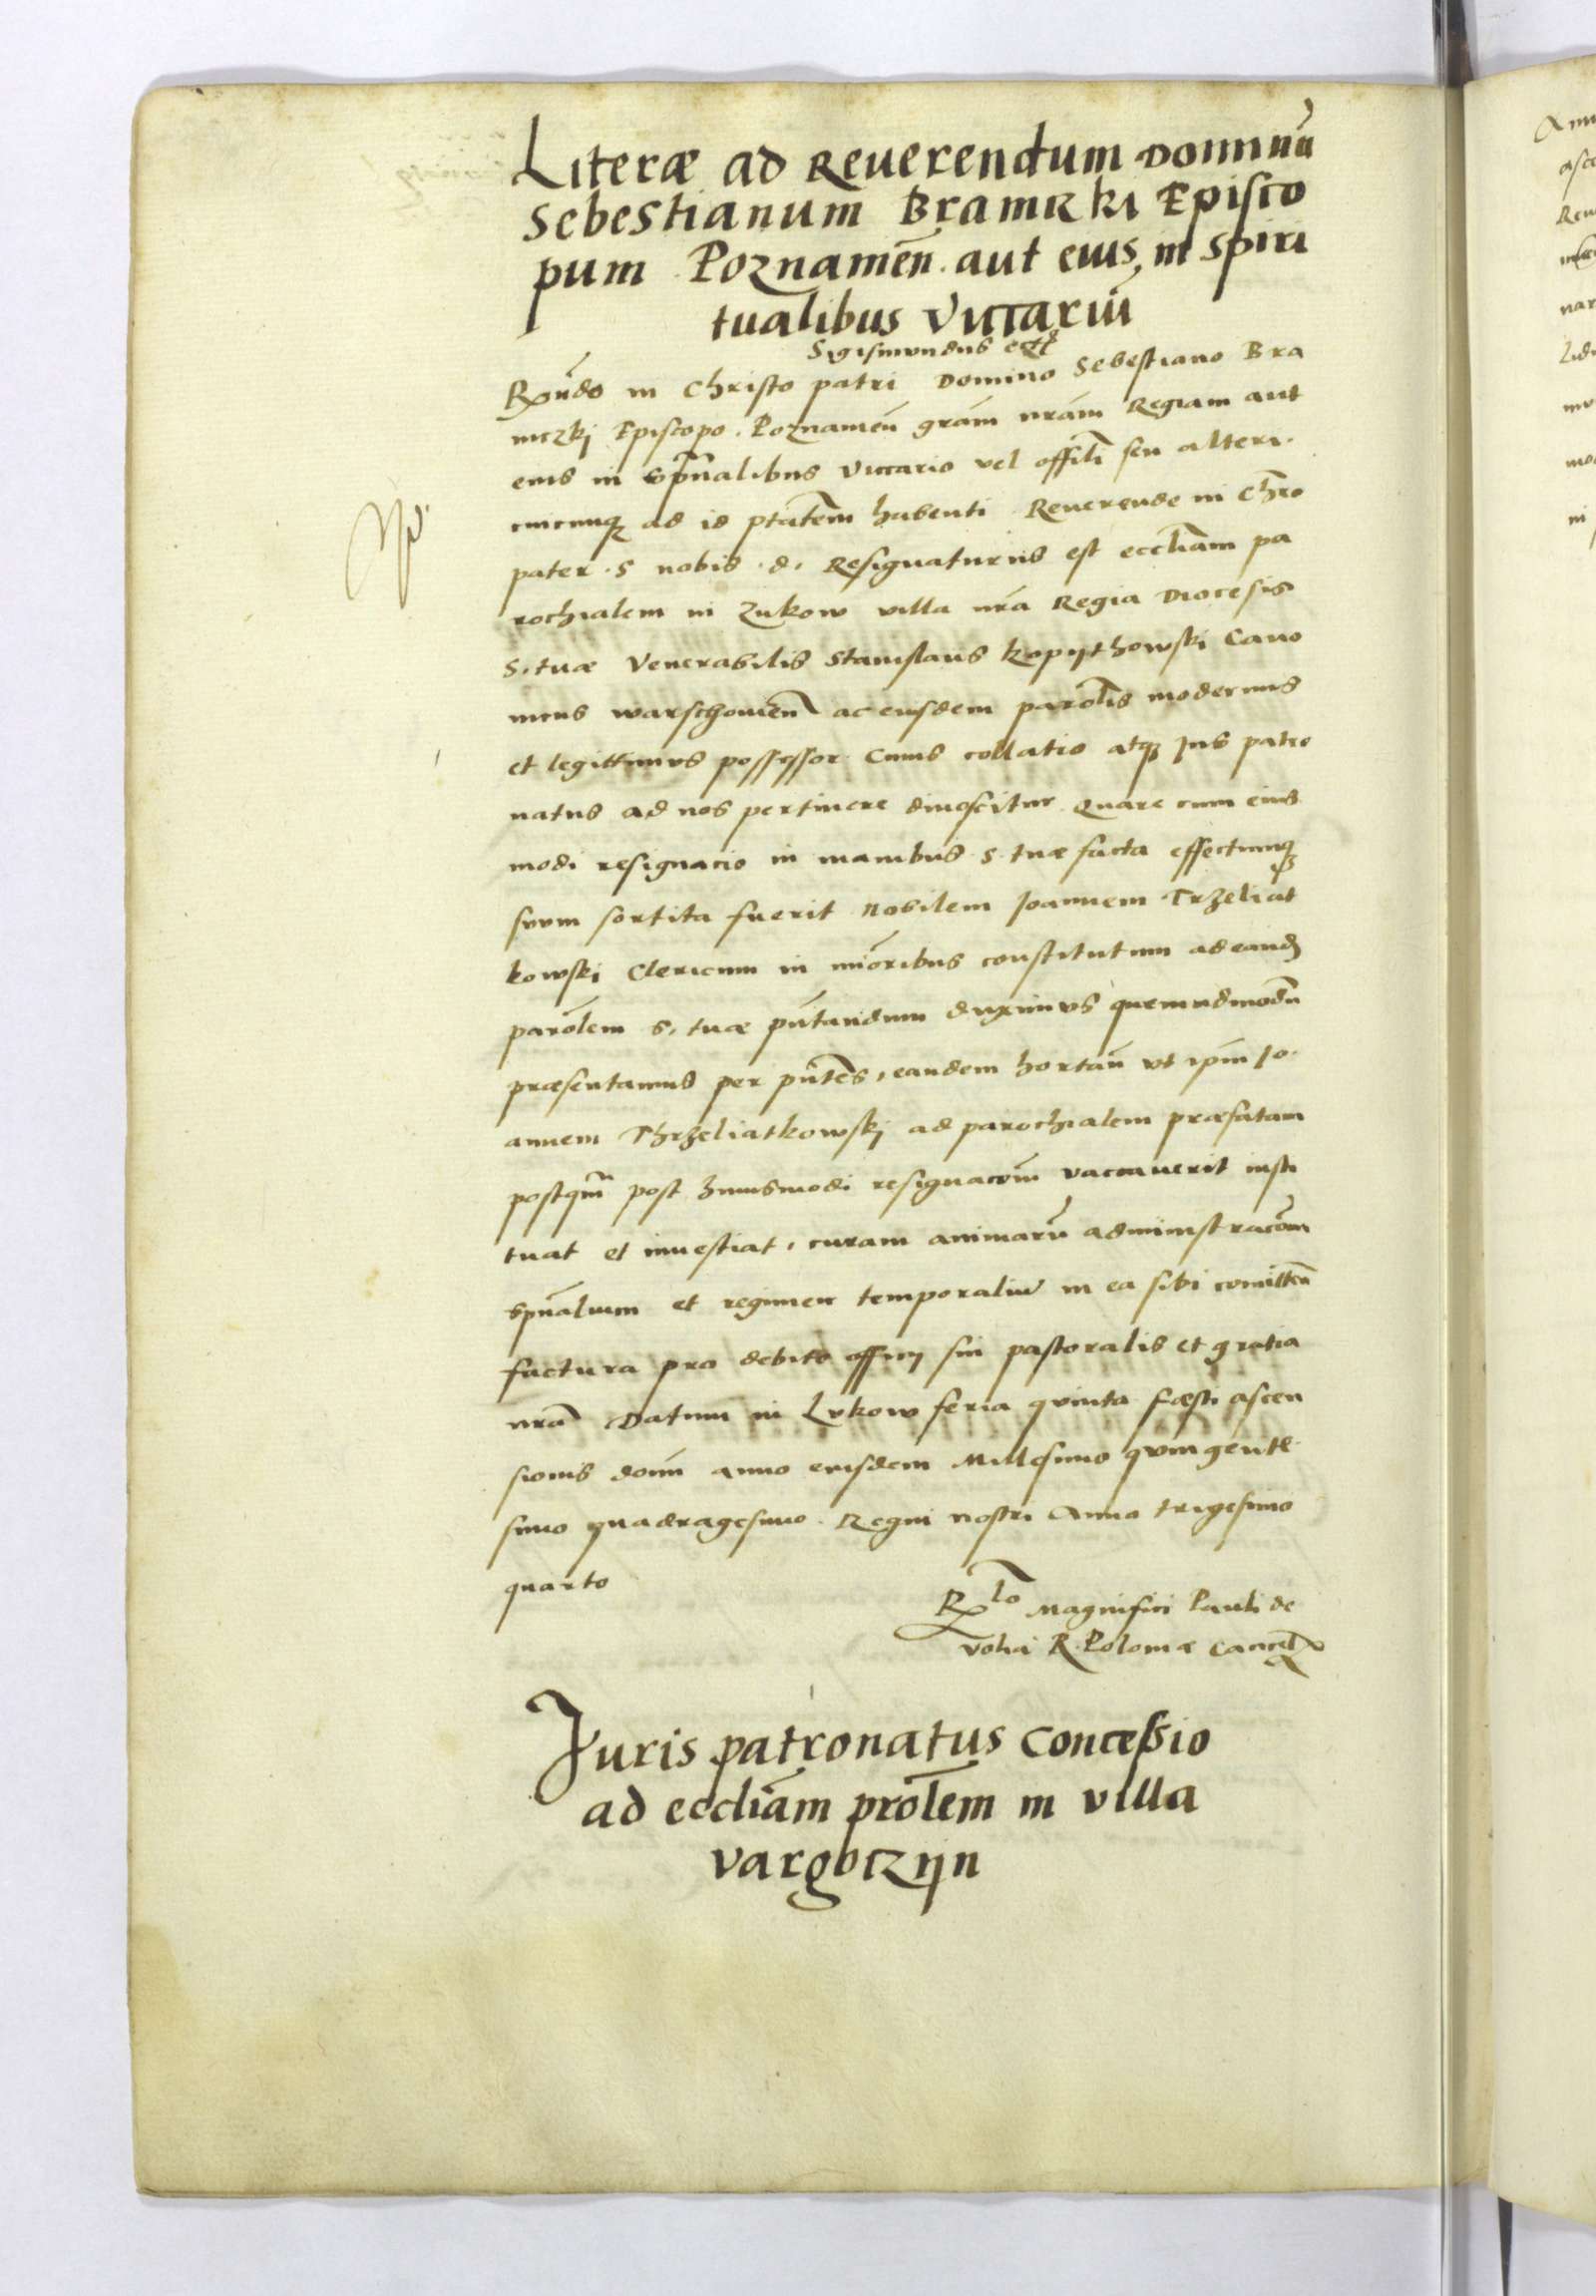 Literæ ad Reuerendum Dominū
Sebestianum Braniczki Episco
pum Poznanień. aut eius, in Spiri
tualibus Viccariū
Sigismundus etc
Rn̄do in Christo patri Domino Sebestiano Bra
niczkj Episcopo. Poznanień grām nrām Regiam aut
eius in Spūalibus Viccario vel offili seu alteri.
cuicunq ad id ptātem habenti Reuerende in Chro
pater. S nobis .d. Resignaturus est eccliam pa
rochialem in Zukow villa nrā Regia Diocesis
S. tuæ Venerabilis Stanislaus Kopijthowski Cano
nicus Warschouień ac eiusdem parōlis modernus
et legittimus possessor. Cuius collatio atq Jus patro
natus ad nos pertinere dinoscitur Quare cum eius
modi resignacio in manibus S. tuæ facta effectumq
suum sortita fuerit Nobilem Joannem Trzeliat
kowski Clericum in miōribus constitutum ad eand
parōlem S. tuæ pn̄tandum duximus quemadmodū
præsentamus per pn̄tes, eandem hortań vt ipm̄ Jo.
annem Thrzeliatkowskj ad parochialem præfatam
postqm̄ post huiusmodi resignacōm vaccauerit insti
tuat et inuestiat, curam animarū administracōm
spūalium et regimen temporaliū in ea sibi comitteń
factura pro debito officij sui pastoralis et gratia
nrā Datum in Lukow feria quinta fæsti ascen
sionis domi anno eiusdem Millesimo quingente
simo quadragesimo. Regni nostri Anno trigesimo
quarto
Rlo Magnifici Pauli de
Volia R. Poloniæ Cancel
Juris patronatus Concessio
ad eccliām prōlem in villa
Vargoczijn